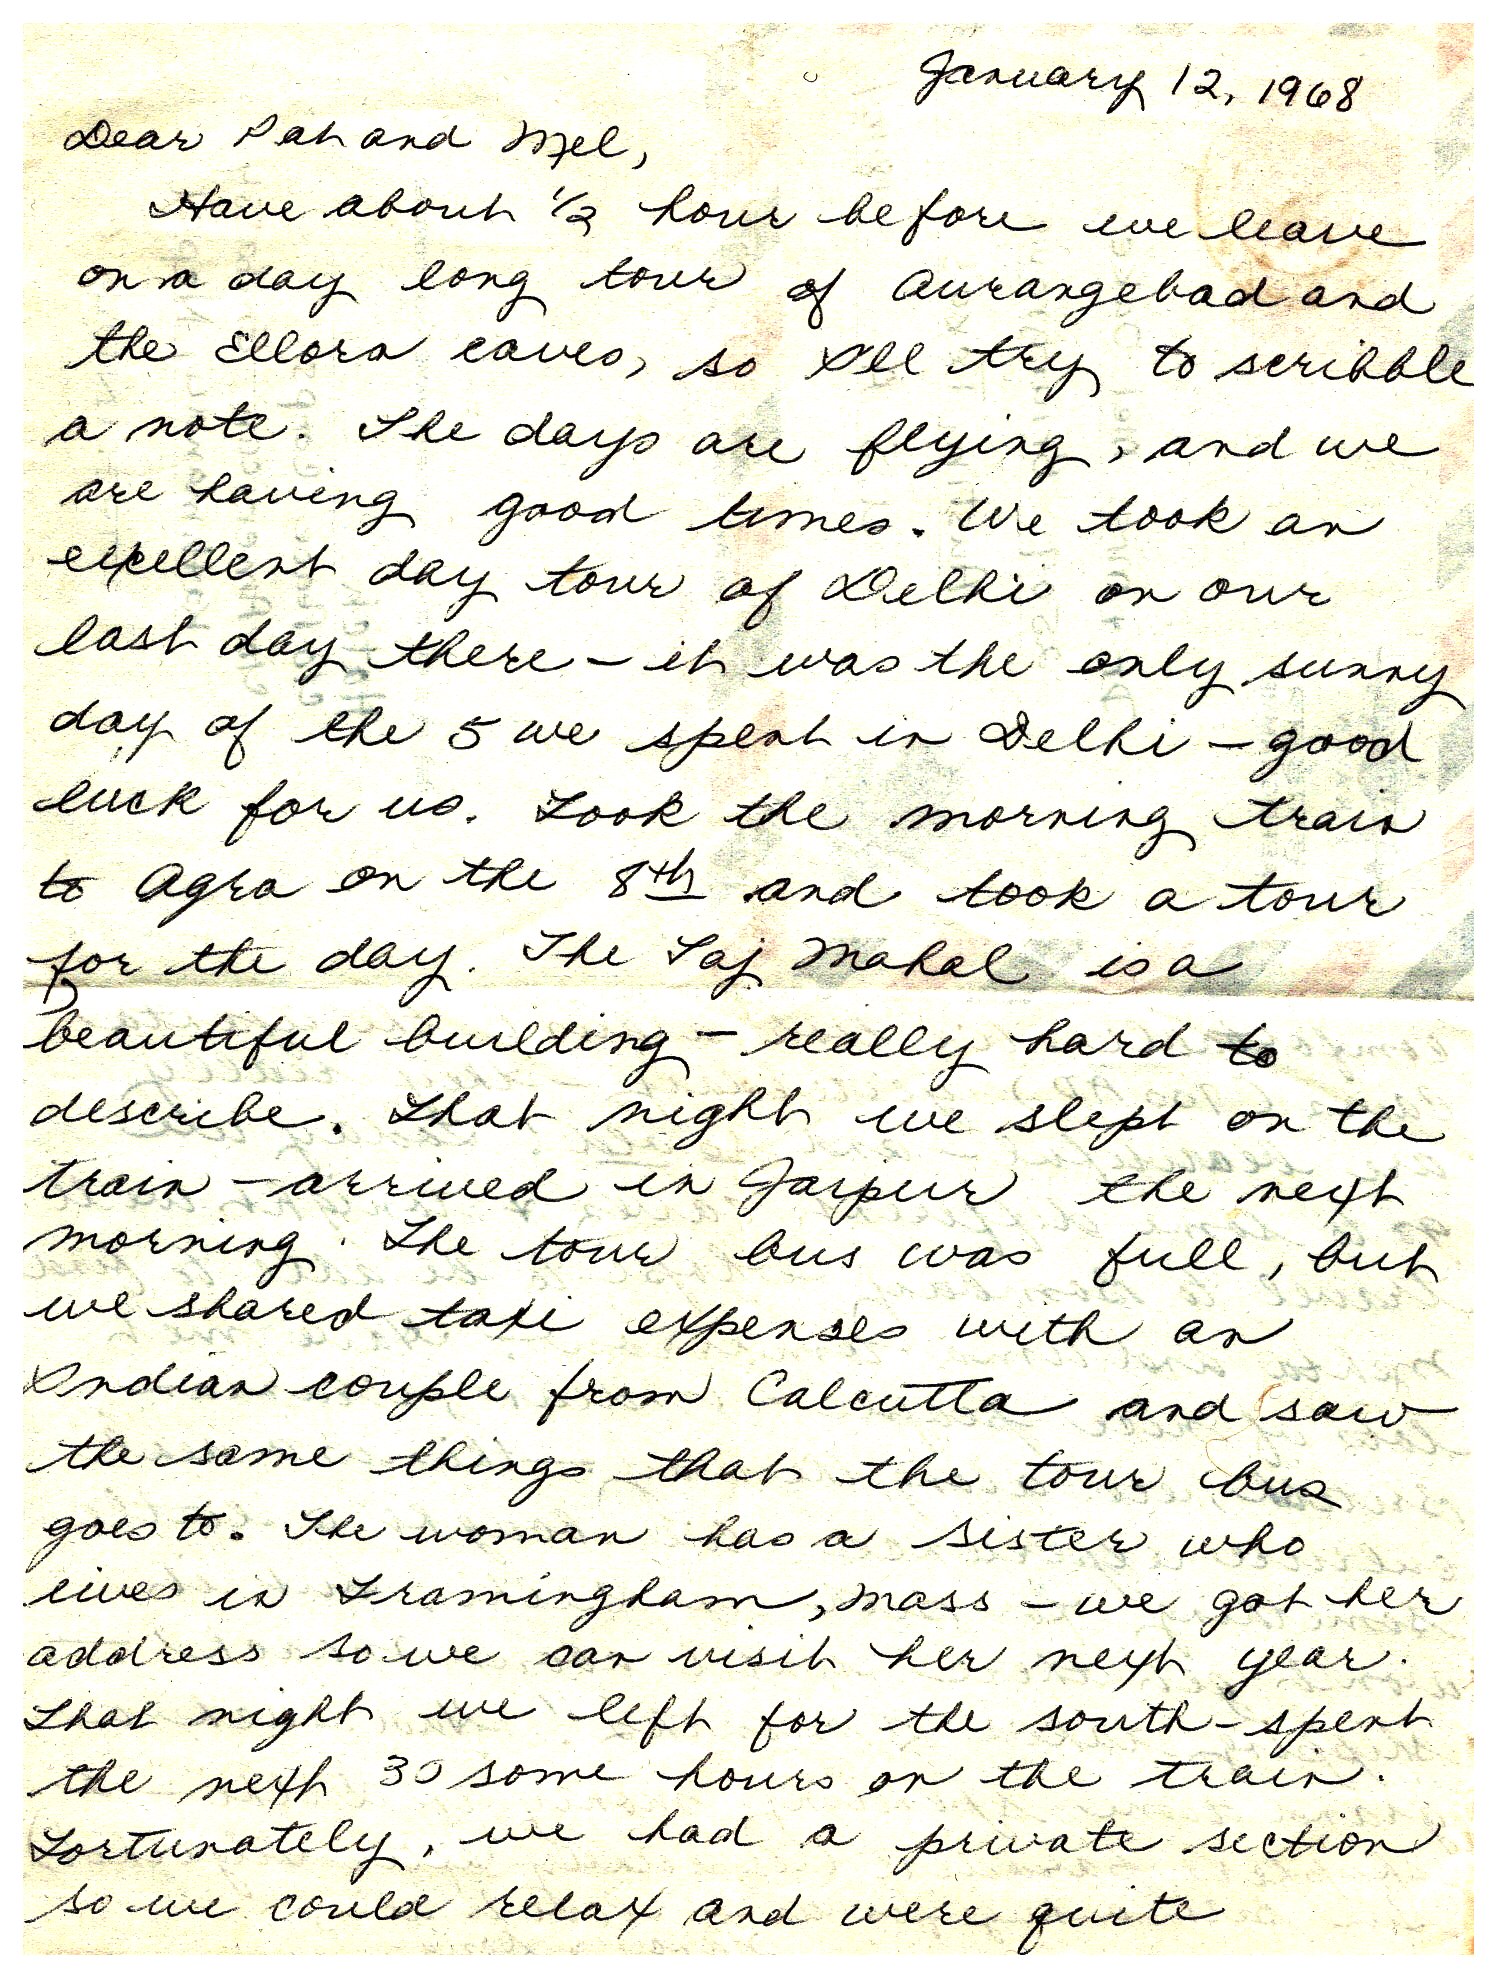 January 12, 1968
Dear Pat and Mel,
Have about 1/2 hour before we leave
on a day long tour of Aurangebad and
the Ellora caves, so I'll try to scribble
a note. The days are flying, and we
are having good times. We took an
excellent day tour of Delhi on our
last day there - it was the only sunny
day of the 5 we spent in Delhi - good
luck for us. Took the morning train
to Agra on the 8th and took a tour
for the day. The Taj Mahal is a
beautiful building - really hard to
describe. That night we slept on the
train - arrived in Jaipur the next
morning. The tour bus was full, but
we shared taxi expenses with an
Indian couple from Calcutta and saw
the same things that the tour bus
goes to. The woman has a sister who
lives in Framingham, Mass - we got her
address so we can visit her next year.
That night we left for the south - spent
the next 30 some hours on the train.
Fortunately, we had a private section
so we could relax and were quite